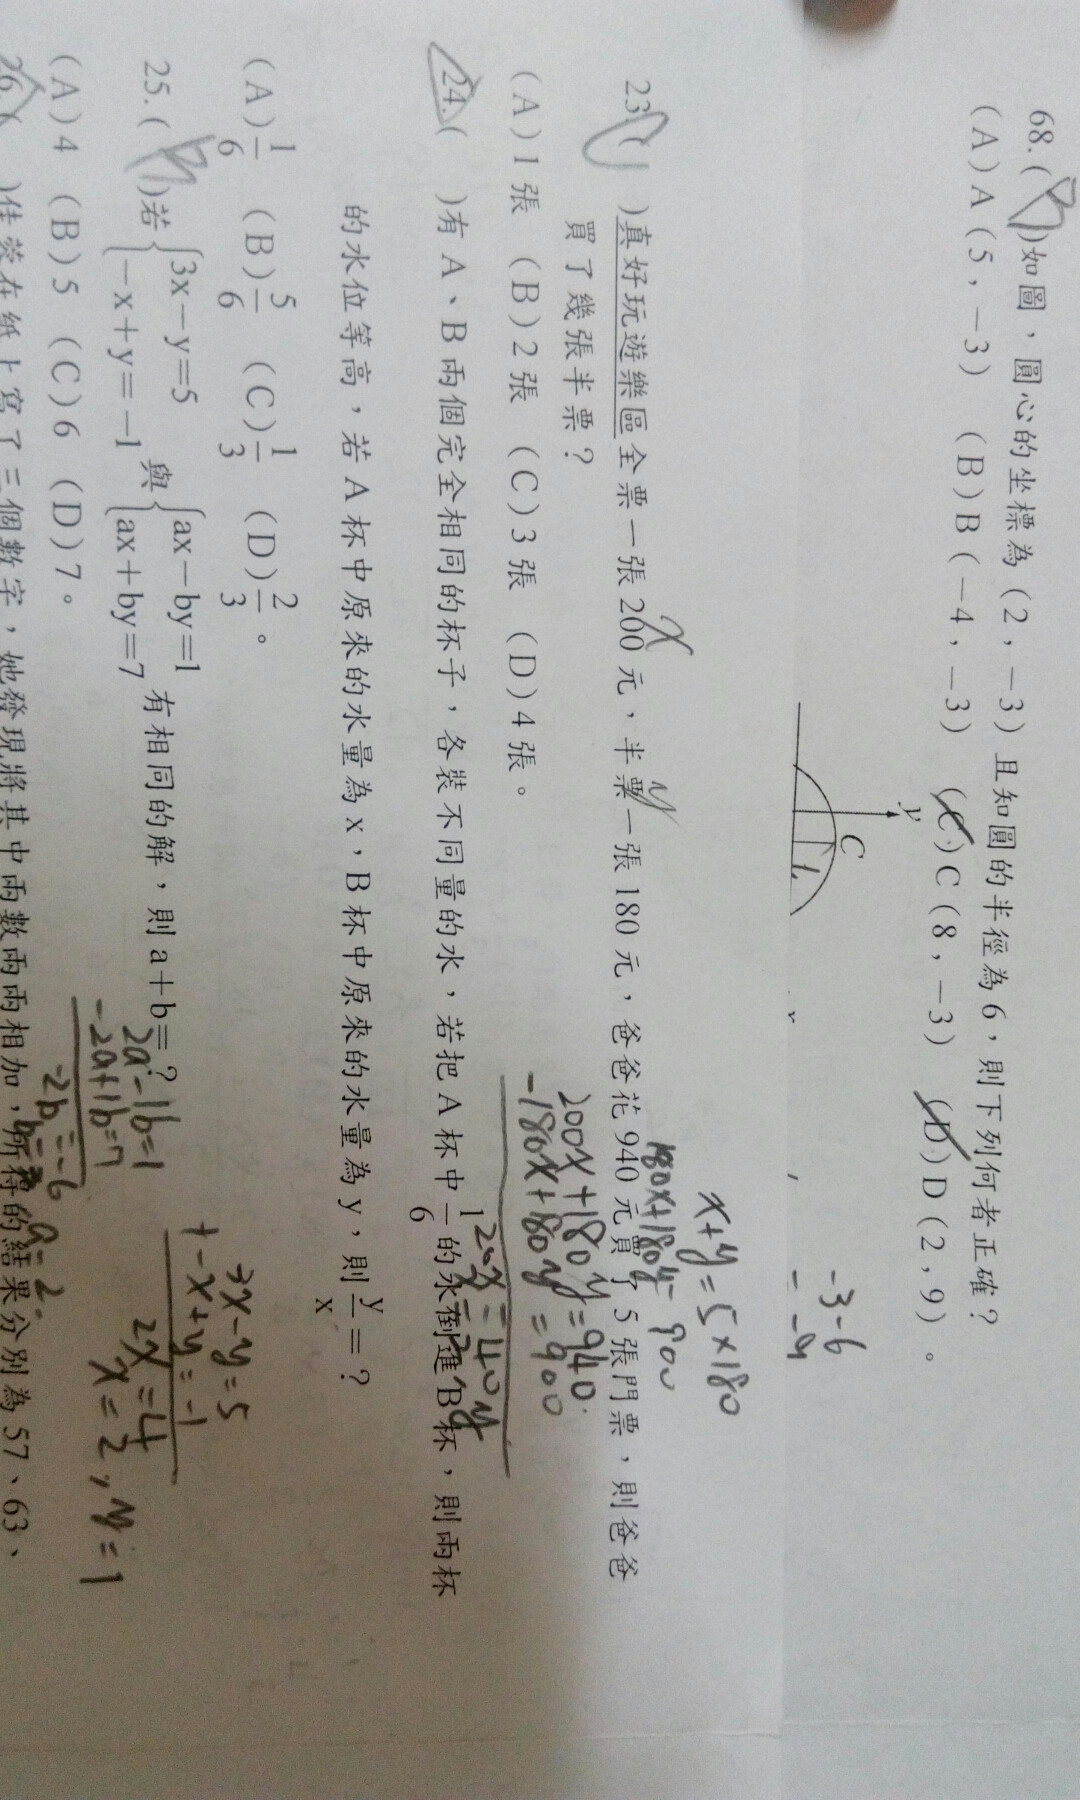 68.(B)如圖，圓心的坐標為(2，－3)且知圓的半徑為6，則下列何者正確？
(A)A(5，－3) (B)B(－4，－3) (C)C(8，－3) (D)D(2，9)。
－3－6
＝－9
y
C
x+y=5×180
180x+180y=900
23.( )真好玩遊樂區全票一張200元，半票一張180元，爸爸花940元買了5張門票，則爸爸
x
y
買了幾張半票？
200x+180y=940
-180x+180y=900
20x=40
(A)1張 (B)2張 (C)3張 (D)4張。
24.( )有A、B兩個完全相同的杯子，各裝不同量的水，若把A杯中1/6的水倒進B杯，則兩杯
的水位等高，若A杯中原來的水量為x，B杯中原來的水量為y，則y/x＝？
(A)1/6 (B)5/6 (C)1/3 (D)2/3。
25.(B)若{3x－y=5 －x＋y=－1 與{ax－by=1 ax＋by=7 有相同的解，則a＋b=？
3x-y=5
+-x+y=-1
2x=4
x=2,y=1
2a-1b=1
-2a+1b=7
-2b=-6
(A)4 (B)5 (C)6 (D)7。
26.( )佳蓉在紙上寫了三個數字，她發現將其中兩數兩兩相加，所得的結果分別為57、63、